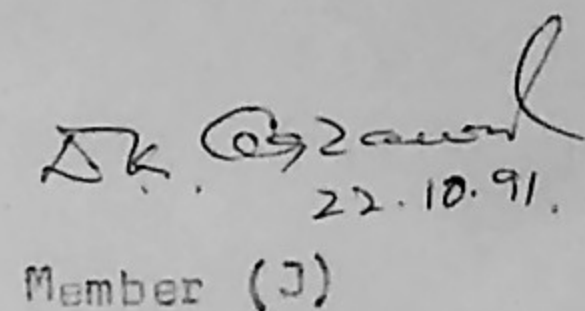 D.K. Agrawal
22.10.91.
Member (J)